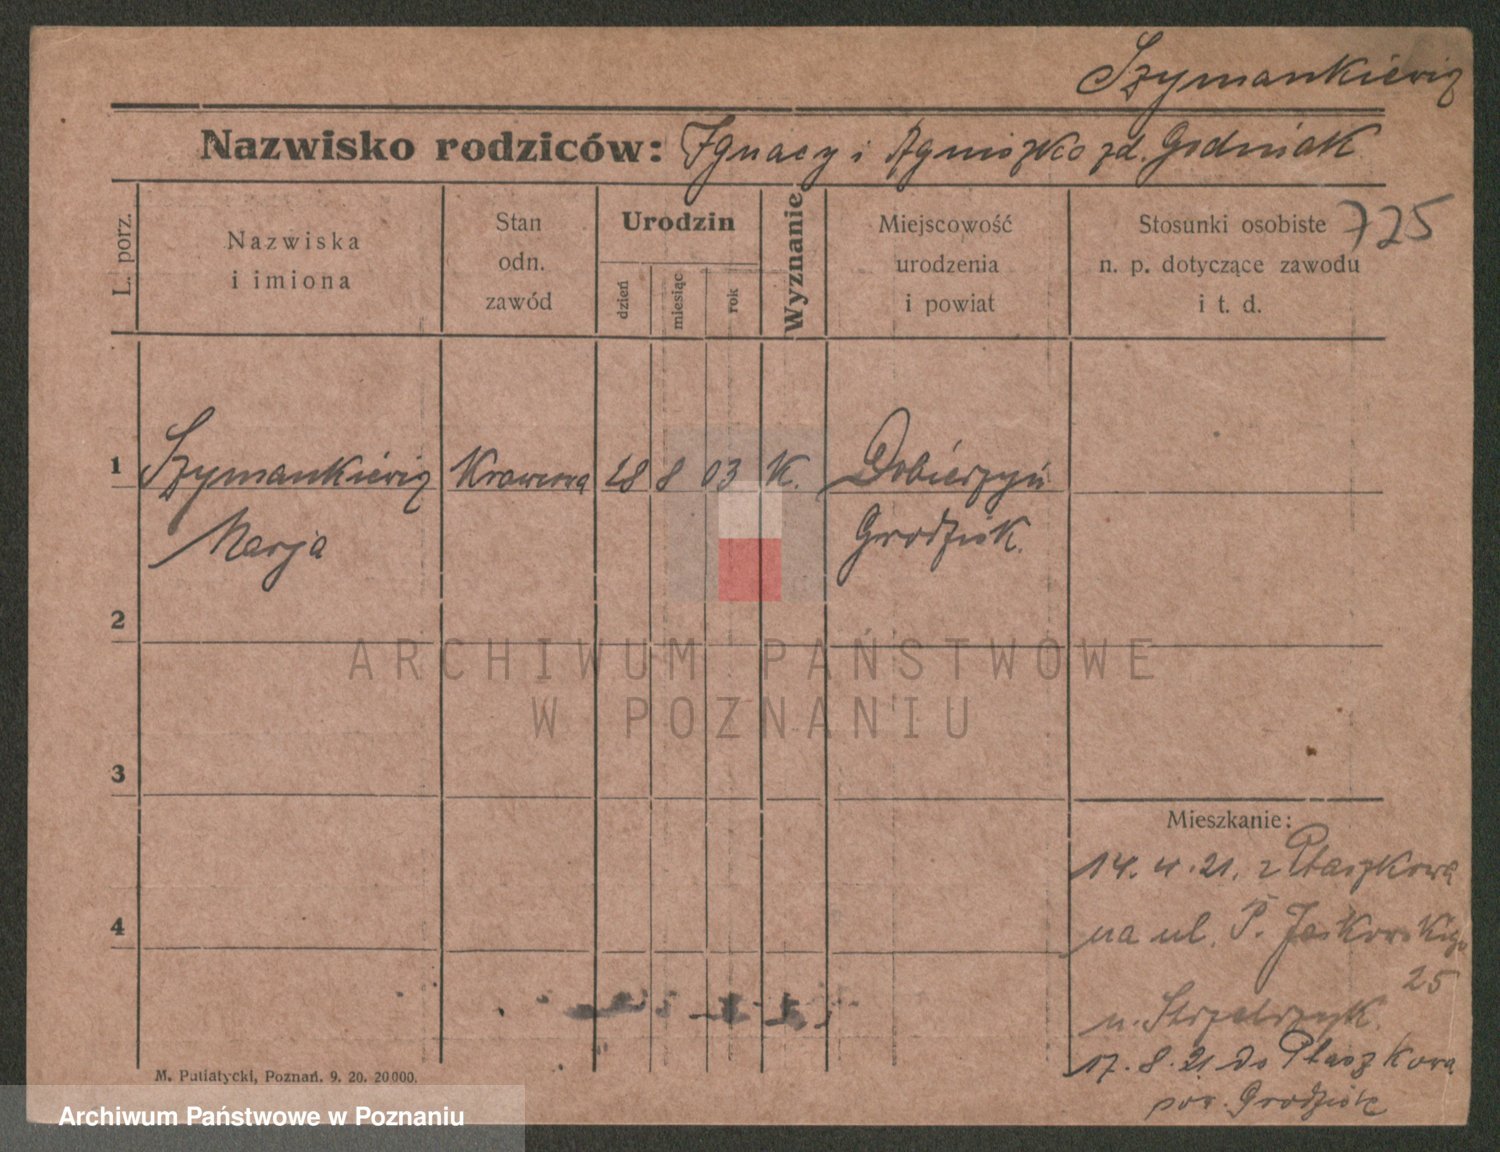 Szymankiewicz
Nazwisko rodziców: Ignacy i Agnieszka zd. Godniak
L. porz.
Nazwiska
i imiona
Stan
odn.
zawód
Urodzin
dzień
miesiąc
rok
Wyznanie
Miejscowość
urodzenia
i powiat
Stosunki osobiste
n. p. dotyczące zawodu
i t. d.
725
1 Szymankiewicz Krawcowa 28 8 03 K. Dobieżyn
Marja Grodzisk.
2
3
4
Mieszkanie:
14. 4. 21. z Ptaszkowa
na ul. P. Jackowskiego
25
u. Strzelczyk.
17. 8. 21 do Ptaszkowa
pow. Grodzisk
M. Putiatycki, Poznań. 9. 20. 20000.
ARCHIWUM PAŃSTWOWE
W POZNANIU
Archiwum Państwowe w Poznaniu